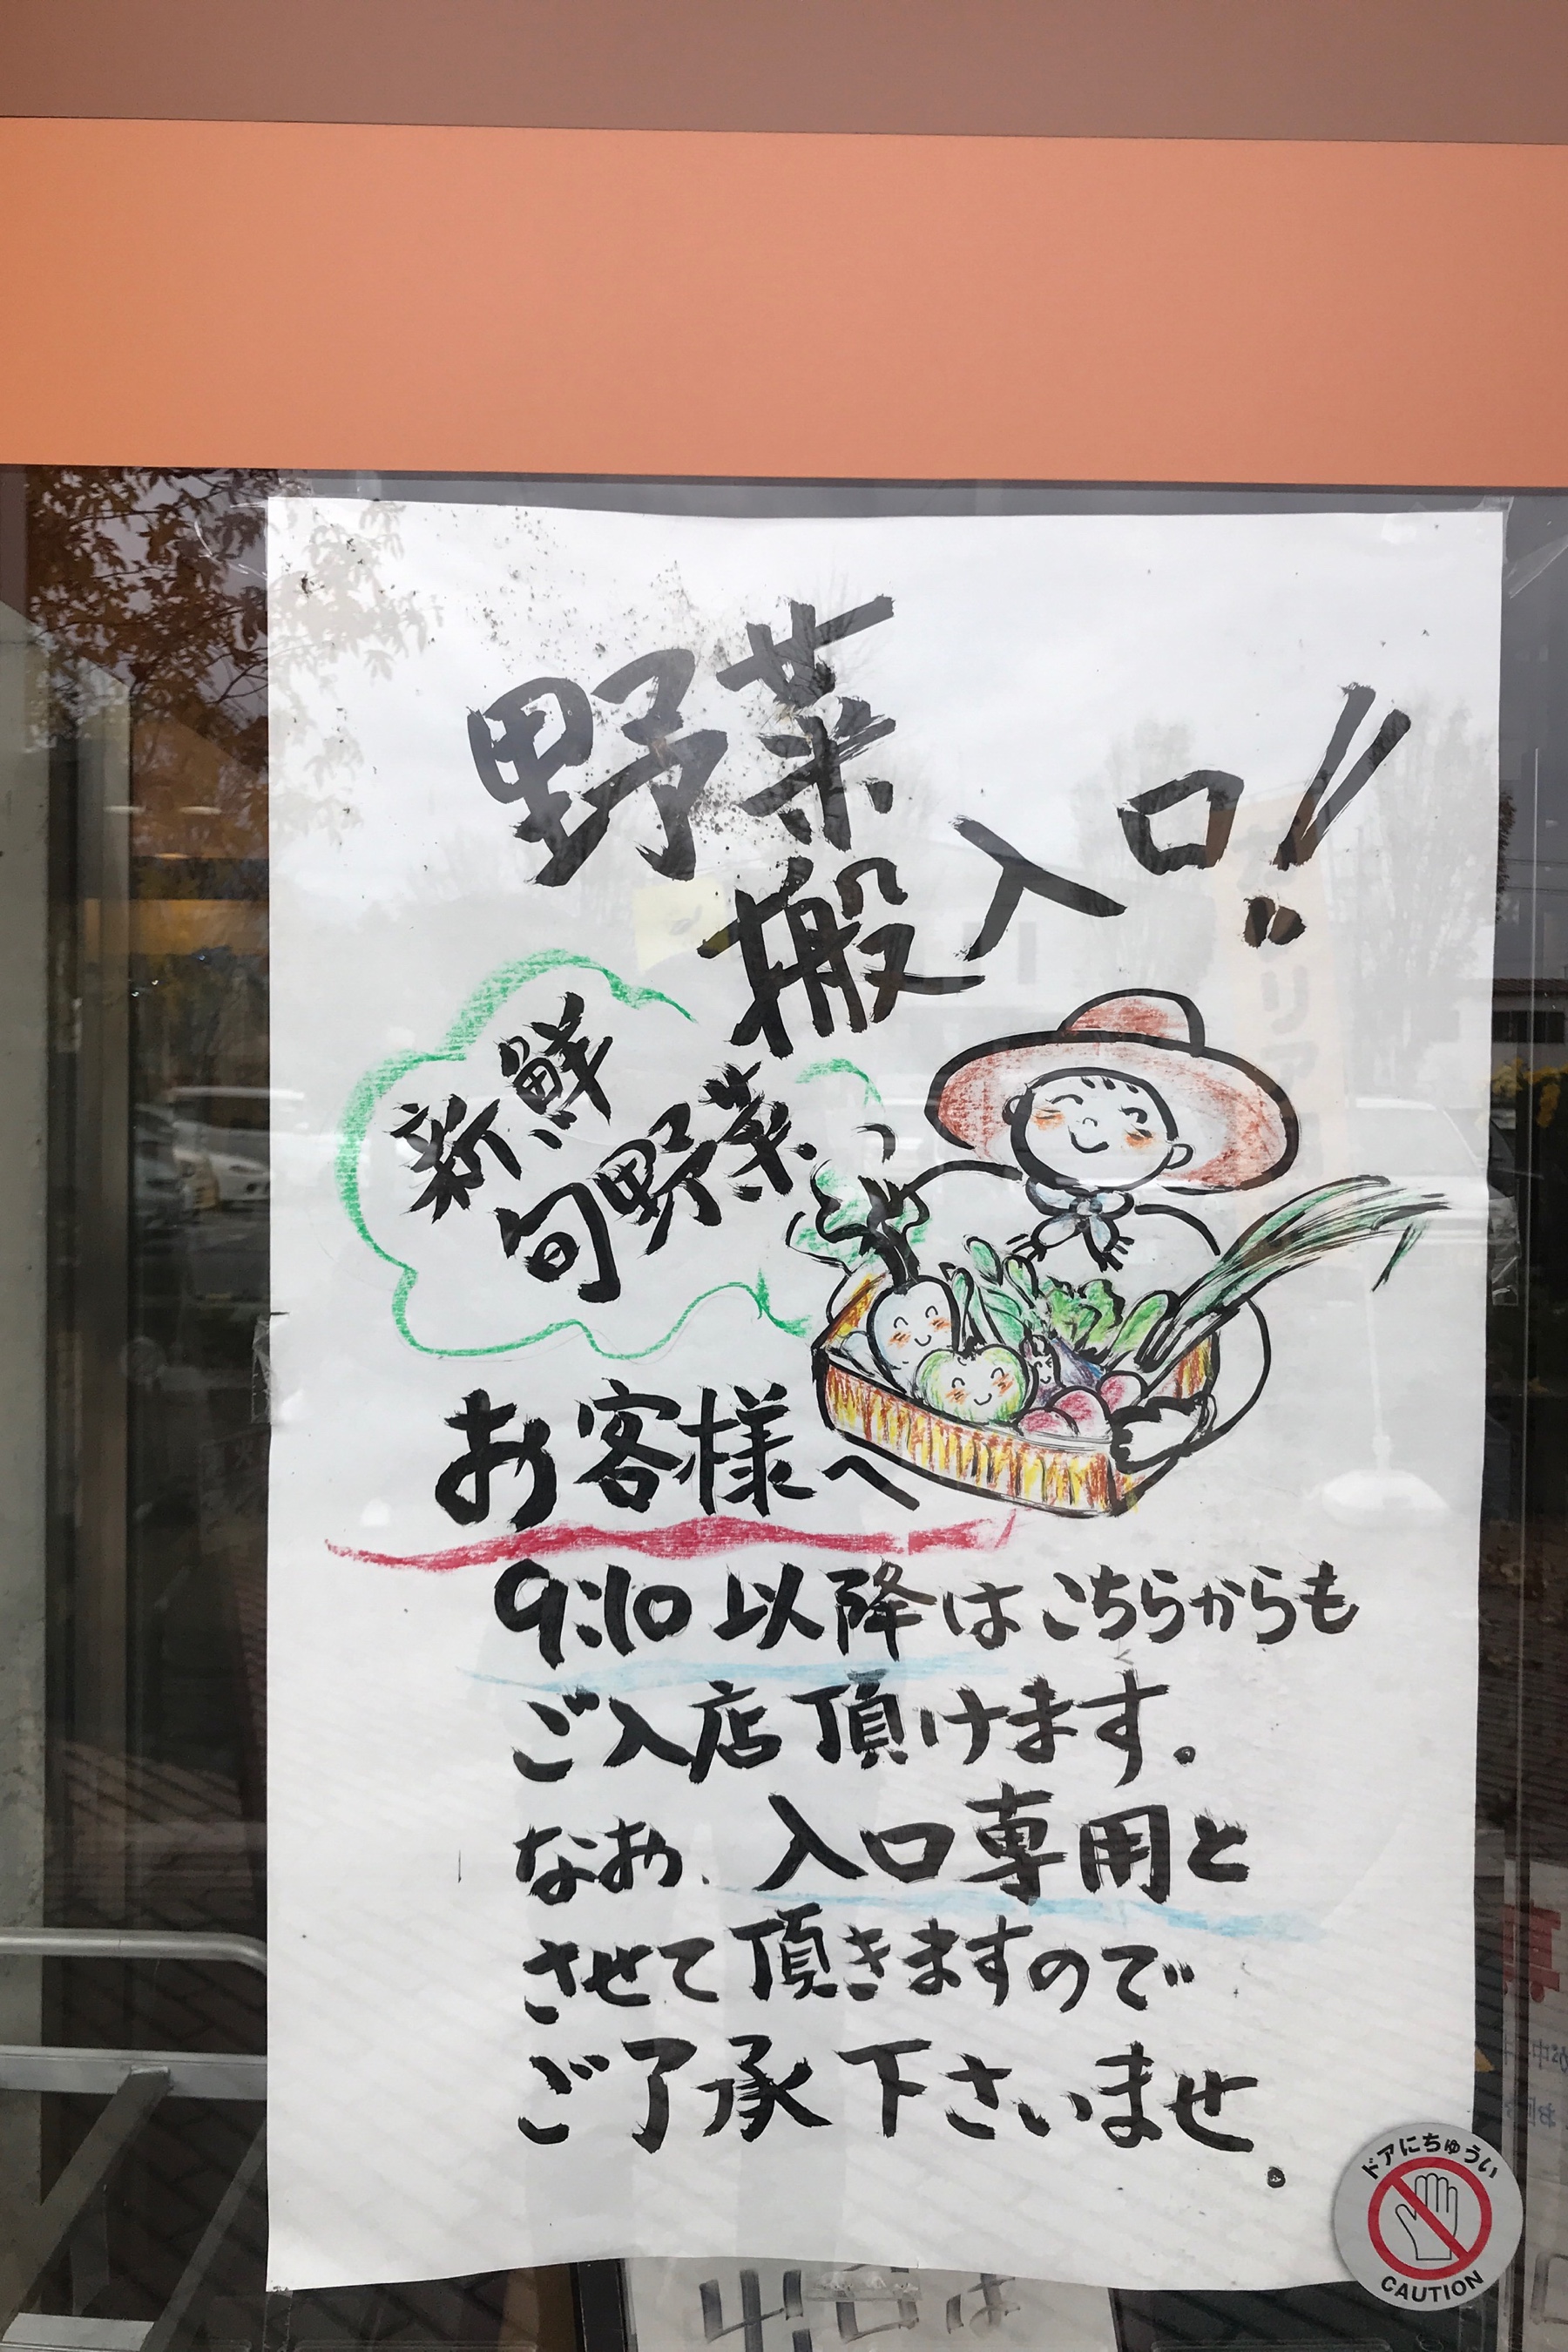 野菜
搬入口!!
新鮮
旬野菜
お客様へ
9:10以降はこちらからも
ご入店頂けます。
なお、入口専用と
させて頂きますので
ご了承下さいませ。
ドアにちゅうい
CAUTION
出口は